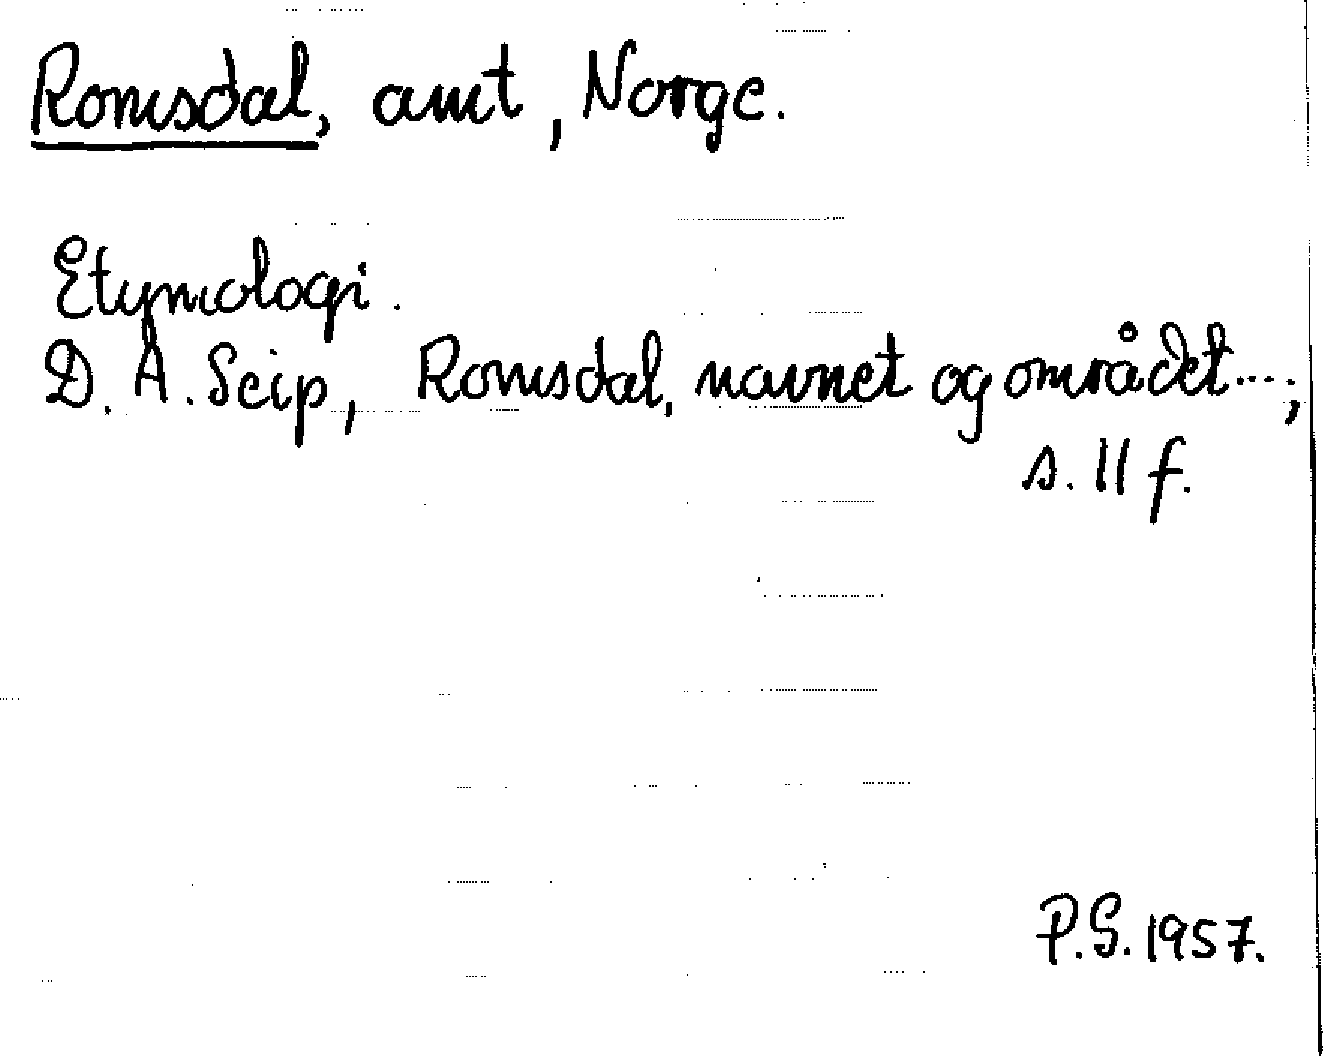 Romsdal, amt, Norge.
Etymologi.
D. A. Seip, Romsdal, navnet og området....;
s. 11 f.
P.S. 1957.